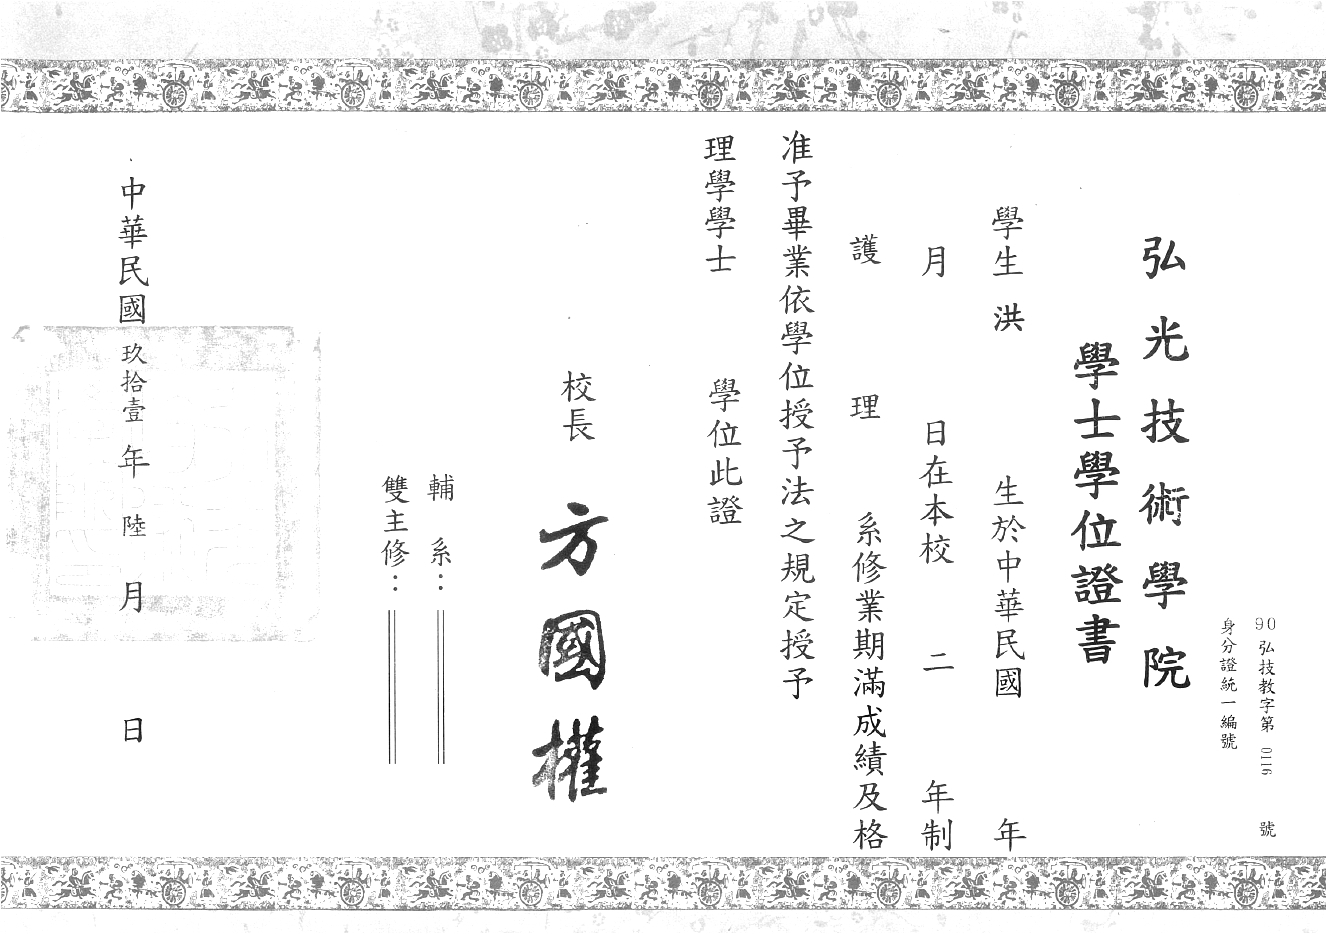 90弘技教字第 0116 號
身分證統一編號
弘光技術學院
學士學位證書
學生 洪 生於中華民國 年
月 日在本校 二 年制
護 理 系修業期滿成績及格
准予畢業依學位授予法之規定授予
理學學士 學位此證
校長 方國權
輔 系：
雙主修：
中華民國玖拾壹年陸月 日